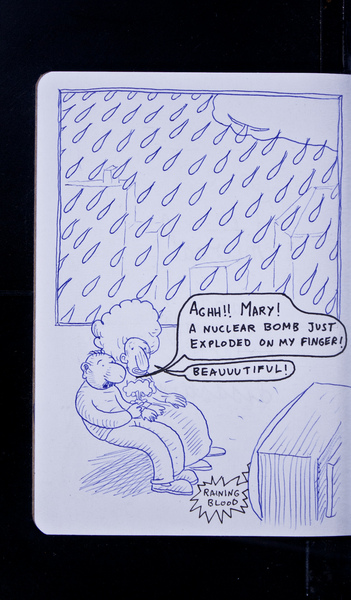 AGHH!! MARY!
A NUCLEAR BOMB JUST
EXPLODED ON MY FINGER!
BEAUUUTIFUL!
RAINING
BLOOD